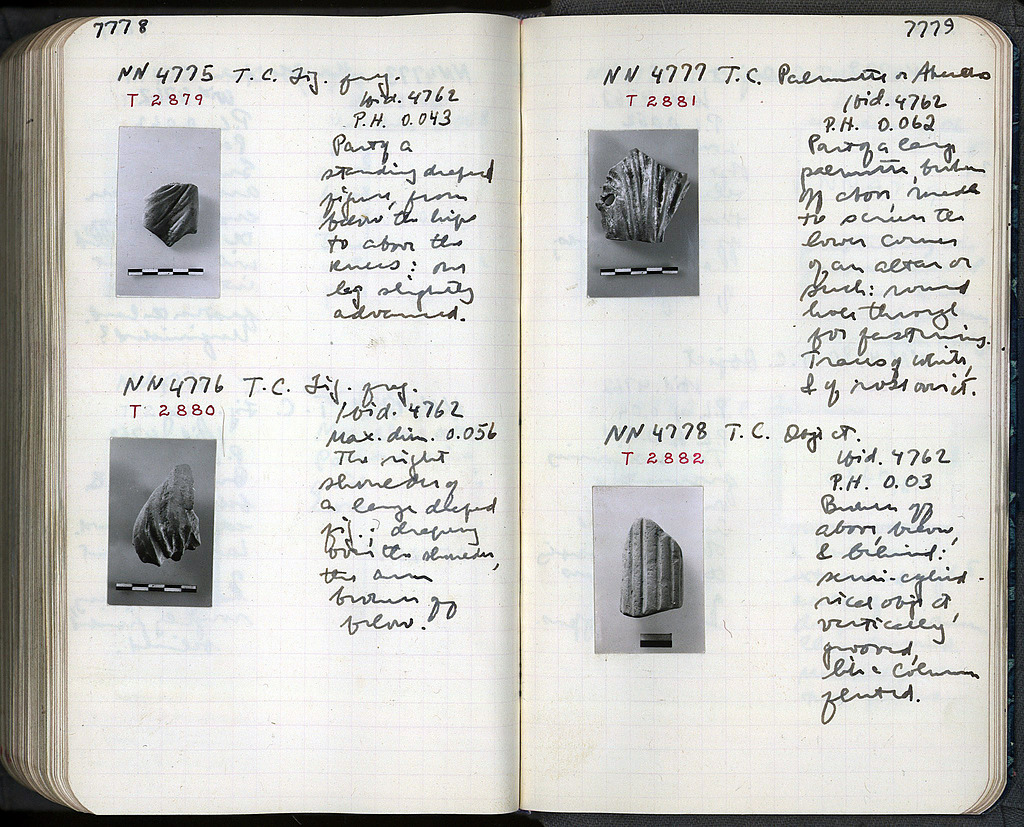 7778
NN 4775 T.C. Fig. frag.
T 2879
Ibid. 4762
P.H. 0.043
Part of a
standing draped
figure, from
below the hips
to above the
knees: one
leg slightly
advanced.
NN 4776 T.C. Fig. frag.
T 2880
Ibid. 4762
Max. dim. 0.056
The right
shoulder of
a large draped
fig.; drapery
over the shoulder,
the arm
broken off
below.
7779
NN 4777 T.C. Palmette or
T 2881
Ibid. 4762
P.H. 0.062
Part of a large
palmette, broken
off above, made
to screen the
lower corner
of an altar or
such: round
hole through
for fastening.
Traces of white,
& of
NN 4778 T.C. Object.
T 2882
Ibid. 4762
P.H. 0.03
Broken off
above, below,
& behind:
semi-cylind-
rical object,
vertically
grooved,
like a column
fluted.